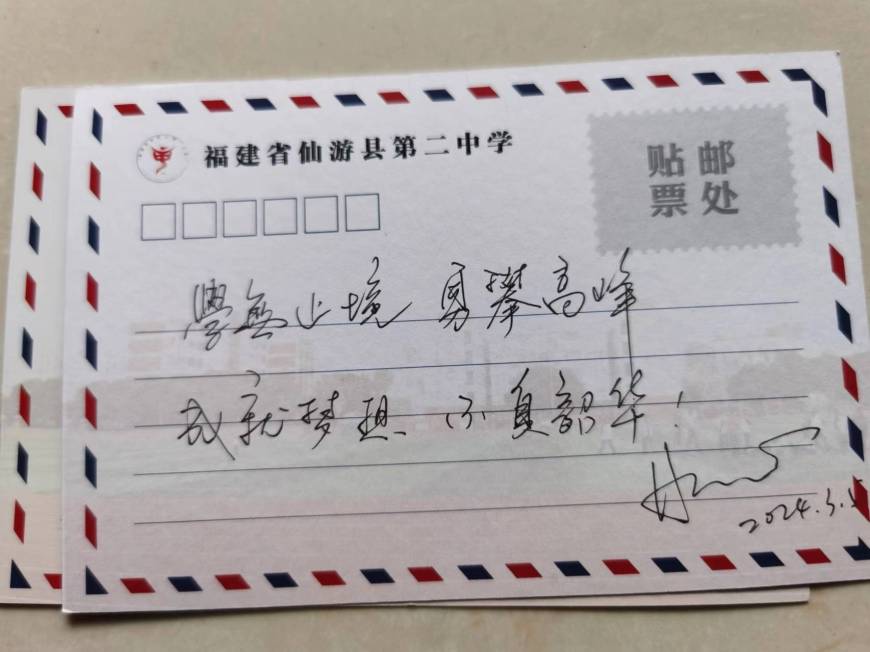 福建省仙游县第二中学
贴邮
票处
學無止境 勇攀高峰
成就梦想 不负韶华!
2024.3.5